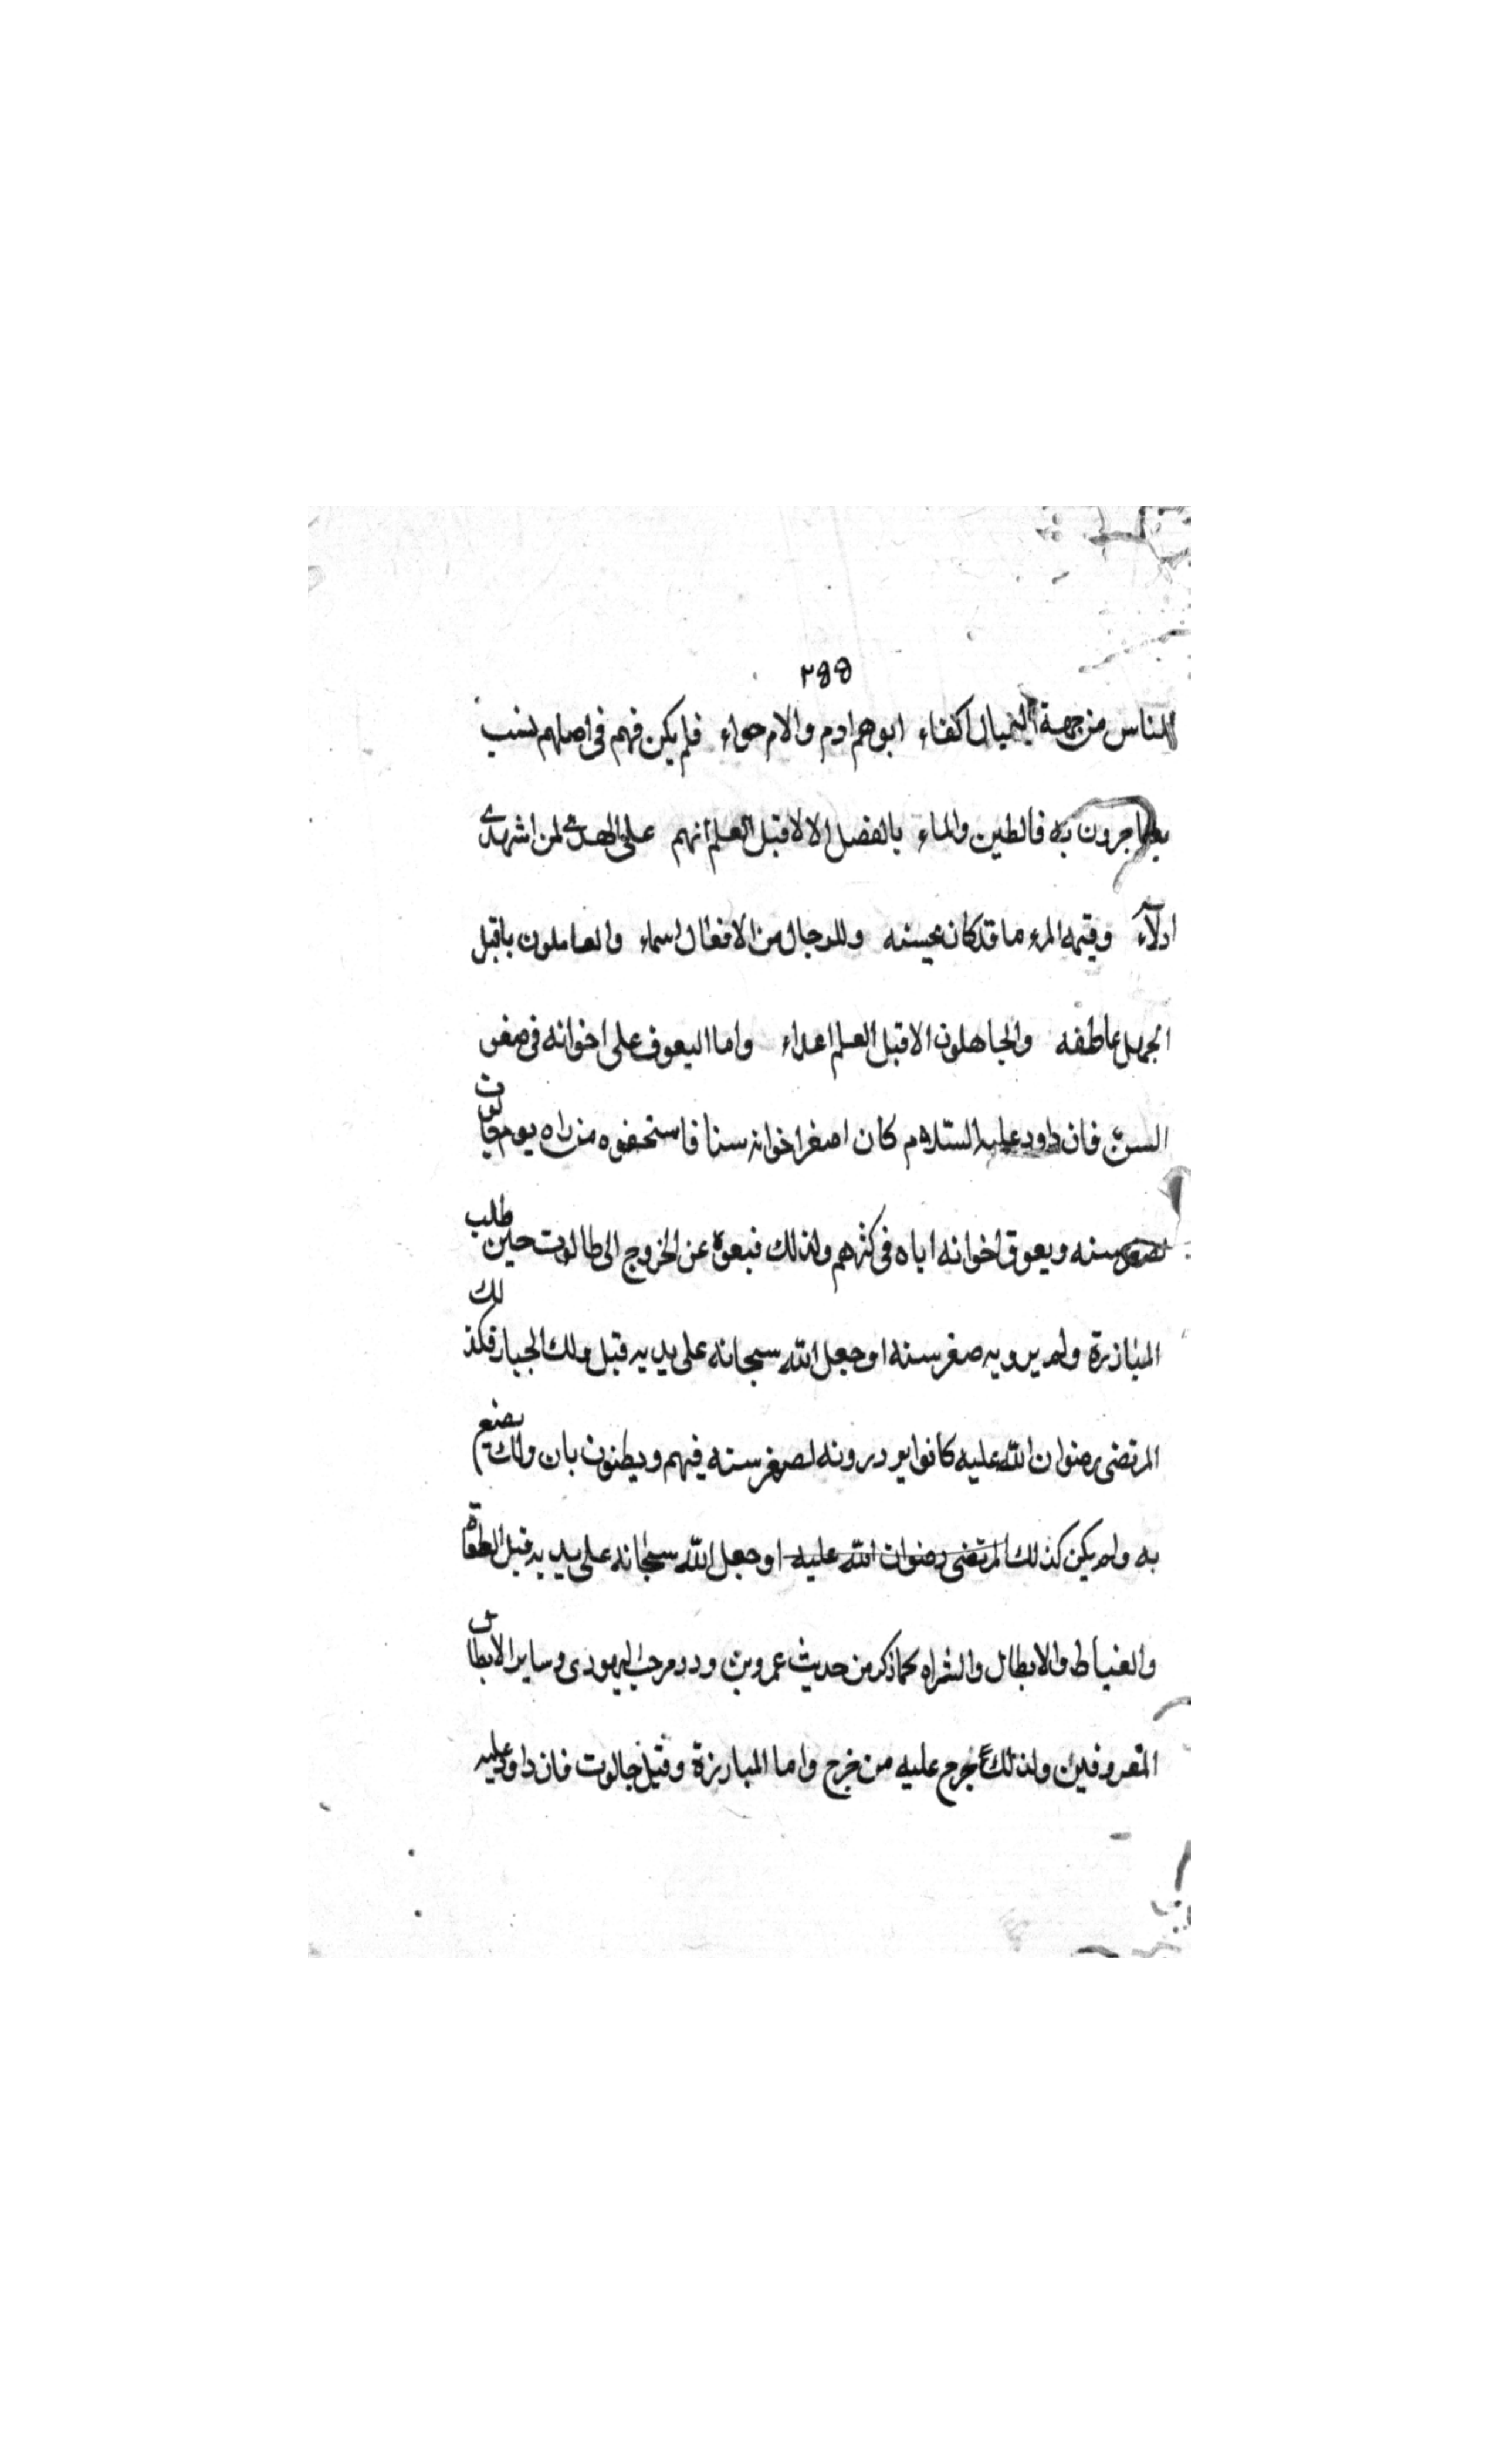 ٢٥٥
للناس من جهة التمثال اكفاء ابوهم ادم والام حواء فلم يكن فهم فى اصلهم نسب
يفاجرون به فالطين والماء بالفضل الا لاقبل العلم انهم على الهدى لمن اشهدى
ادلآء وقيمه المرء ما قد كان يحسنه وللرجال من الافعال اسماء والعاملون باقبل
الجهل عاطفه والجاهلون الاقبل العلم اعداء واما اليعوف على اخوانه فى صغر
السن فان داود عليه السلام كان اصغر اخوانه سنا فاستحفوه من راه يوم جالوت
لصغر سنه ويعوق اخوانه اياه فى كثرهم ولذلك فبعوه عن الخروج الى طالوت حين طلب
المبازرة ولم يرويه صغر سنه اوجعل الله سبحانه على يديه قتل ولك الجبار فكذلك
المرتضى رضوان الله عليه كانوا يودرونه لصغر سنه فيهم ويطنون بان ولك يصنع
به ولم يكن كذلك المرتضى رضوان الله عليه اوجعل الله سبحانه على يديه قتل الطغاة
والعنياط والابطال والشراه كماذكر من حديث عمروبن ودومرحب اليهودى وساير الابطال
المعروفين ولذلك بجرم عليه من خرج واما المبارزة وقتيل جالوت فان داود عليه